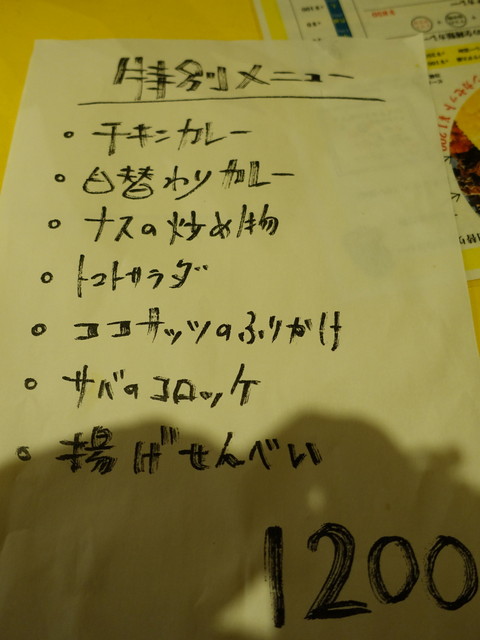 特別メニュー
・チキンカレー
・日替わりカレー
・ナスの炒め物
・トマトサラダ
・ココナッツのふりかけ
・サバのコロッケ
・揚げせんべい
1200